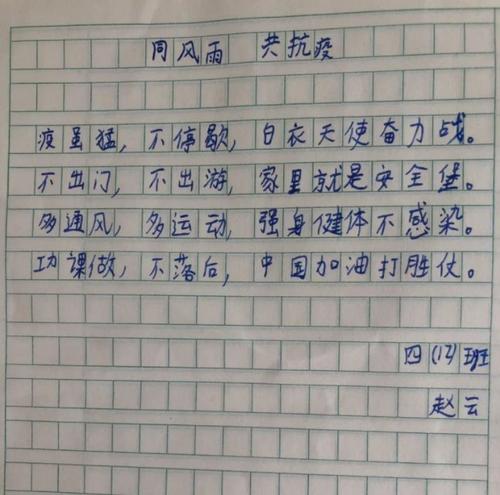 同风雨 共抗疫
疫虽猛，不停歇，白衣天使奋力战。
不出门，不出游，家里就是安全堡。
多通风，多运动，强身健体不感染。
功课做，不落后，中国加油打胜仗。
四(12)班
赵云